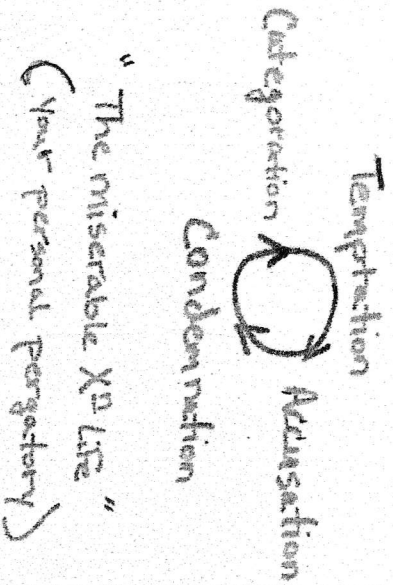 Temptation
Categoration
Accusation
Condemnation
"The miserable Xⁿ Life"
(Your personal pergatory)